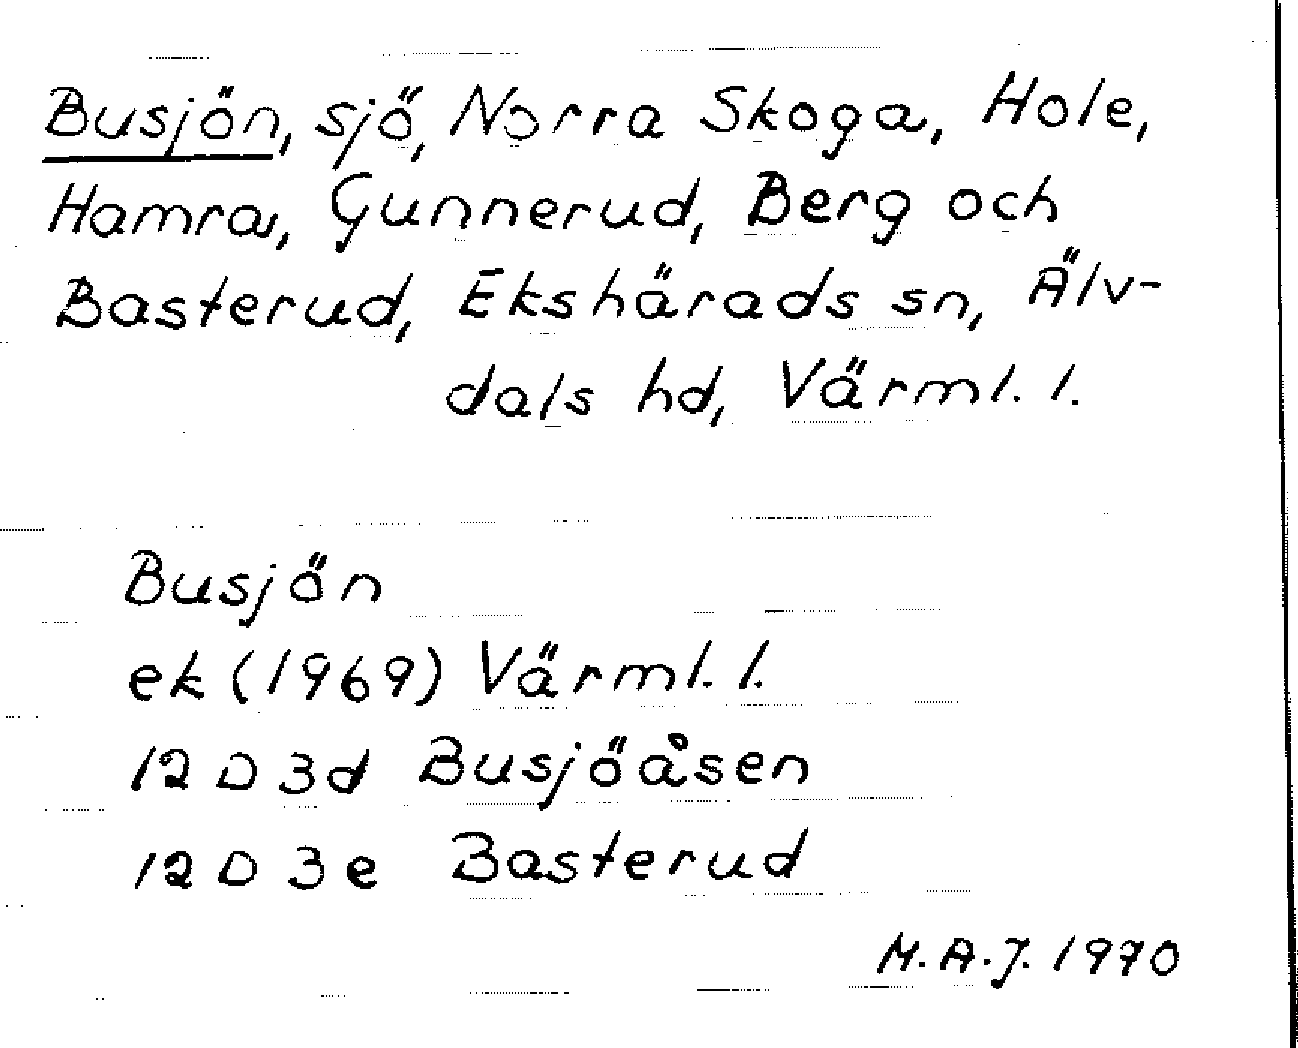 Busjön, sjö, Norra Skoga, Hole,
Hamra, Gunnerud, Berg och
Basterud, Ekshärads sn, Älv-
dals hd, Värml. l.
Busjön
ek (1969) Värml. l.
12 D 3d Busjöåsen
12 D 3e Basterud
M.A.J. 1970